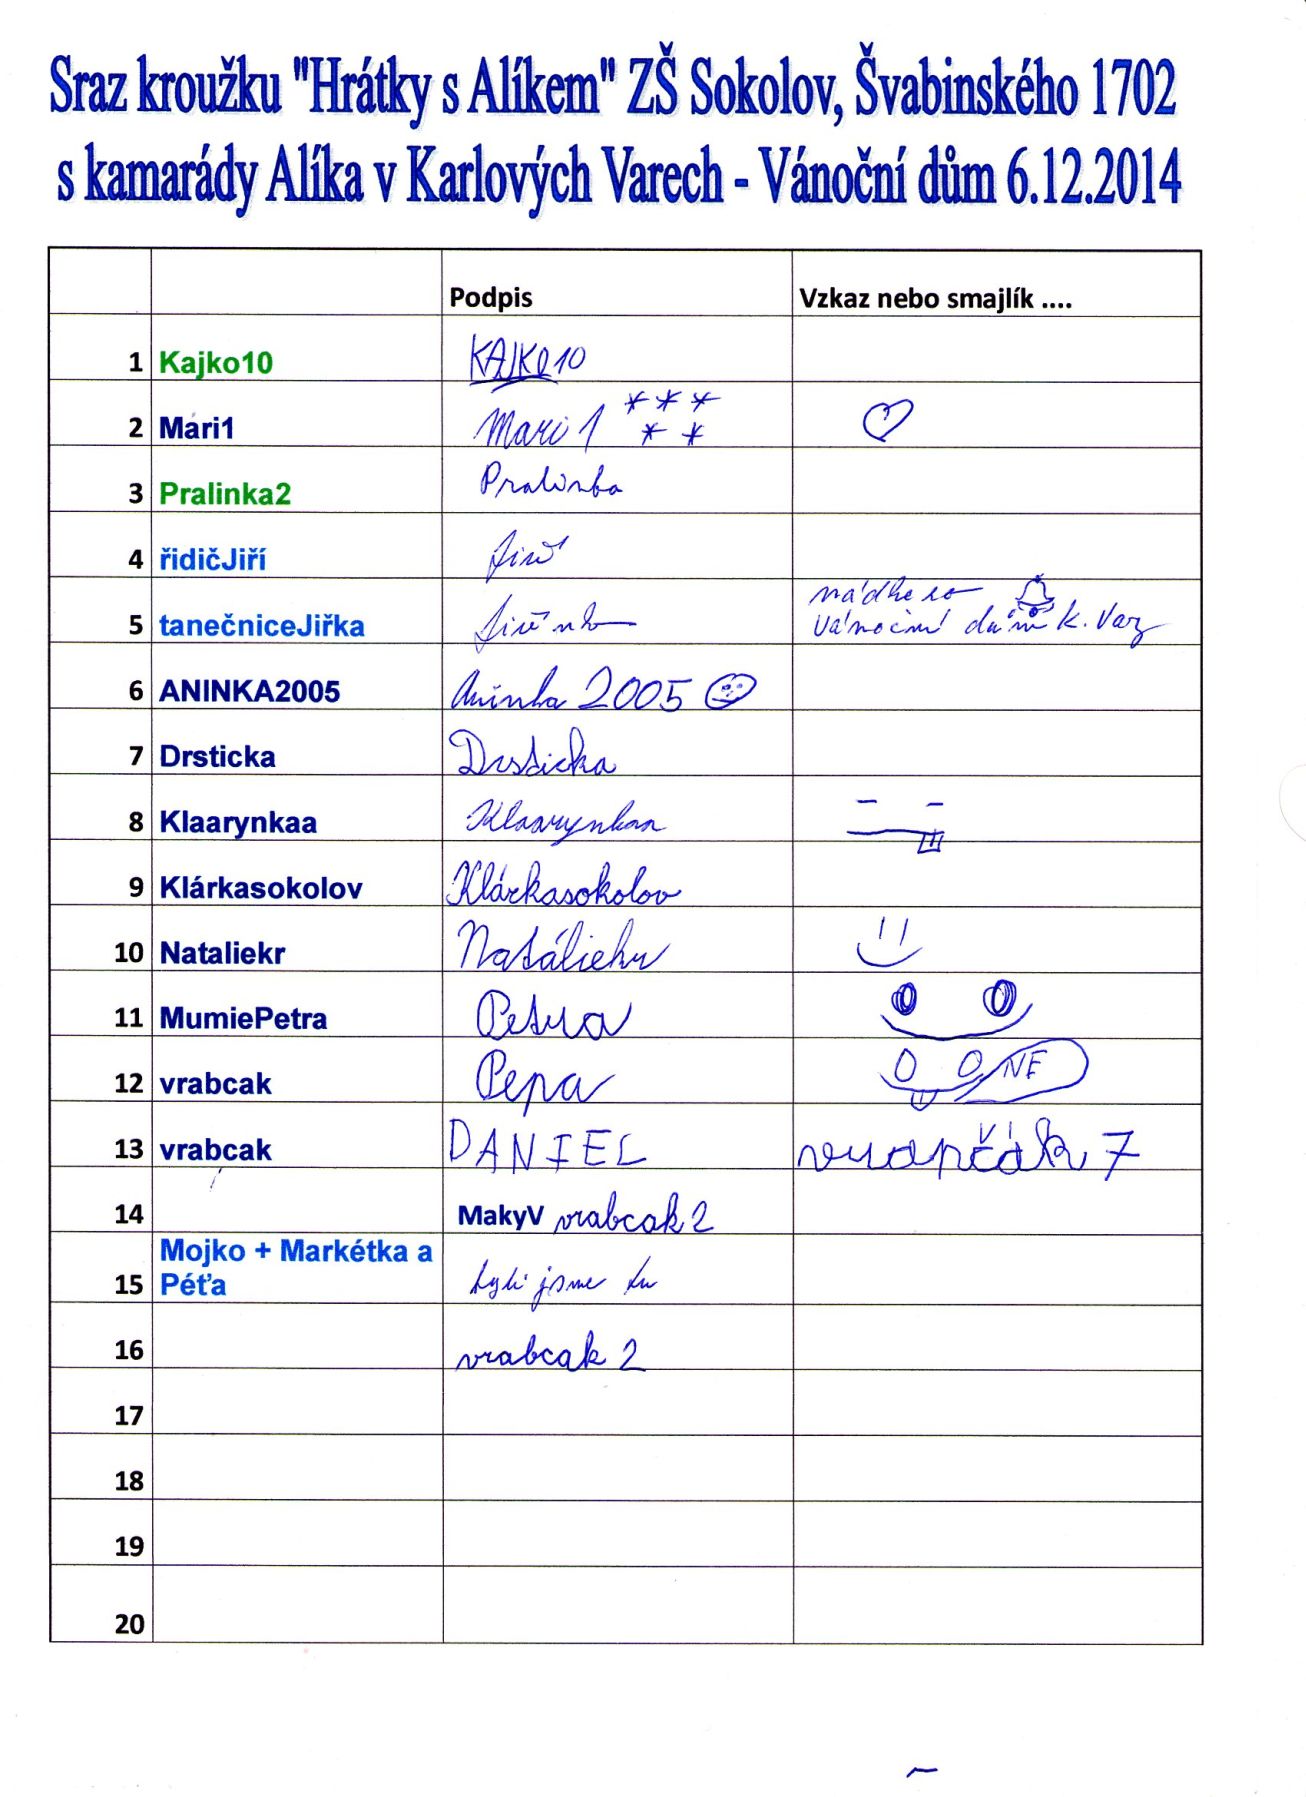 Sraz kroužku "Hrátky s Alíkem" ZŠ Sokolov, Švabinského 1702
s kamarády Alíka v Karlových Varech - Vánoční dům 6.12.2014
Podpis Vzkaz nebo smajlík ....
1 Kajko10 KAJKO10
2 Mári1 Mari 1
3 Pralinka2 Pralinka
4 řidičJiří Jiří
nádhera
5 tanečniceJiřka Jiřinka Vánoční dům K. Vary
6 ANINKA2005 Aninka 2005
7 Drsticka Drsticka
8 Klaarynkaa Klaarynkaa
9 Klárkasokolov Klárkasokolov
10 Nataliekr Natáliekr
11 MumiePetra Petra
12 vrabcak Pepa NE
13 vrabcak DANIEL vrapčák 7
14 MakyV vrabcak 2
Mojko + Markétka a
15 Péťa byli jsme tu
16 vrabcak 2
17
18
19
20